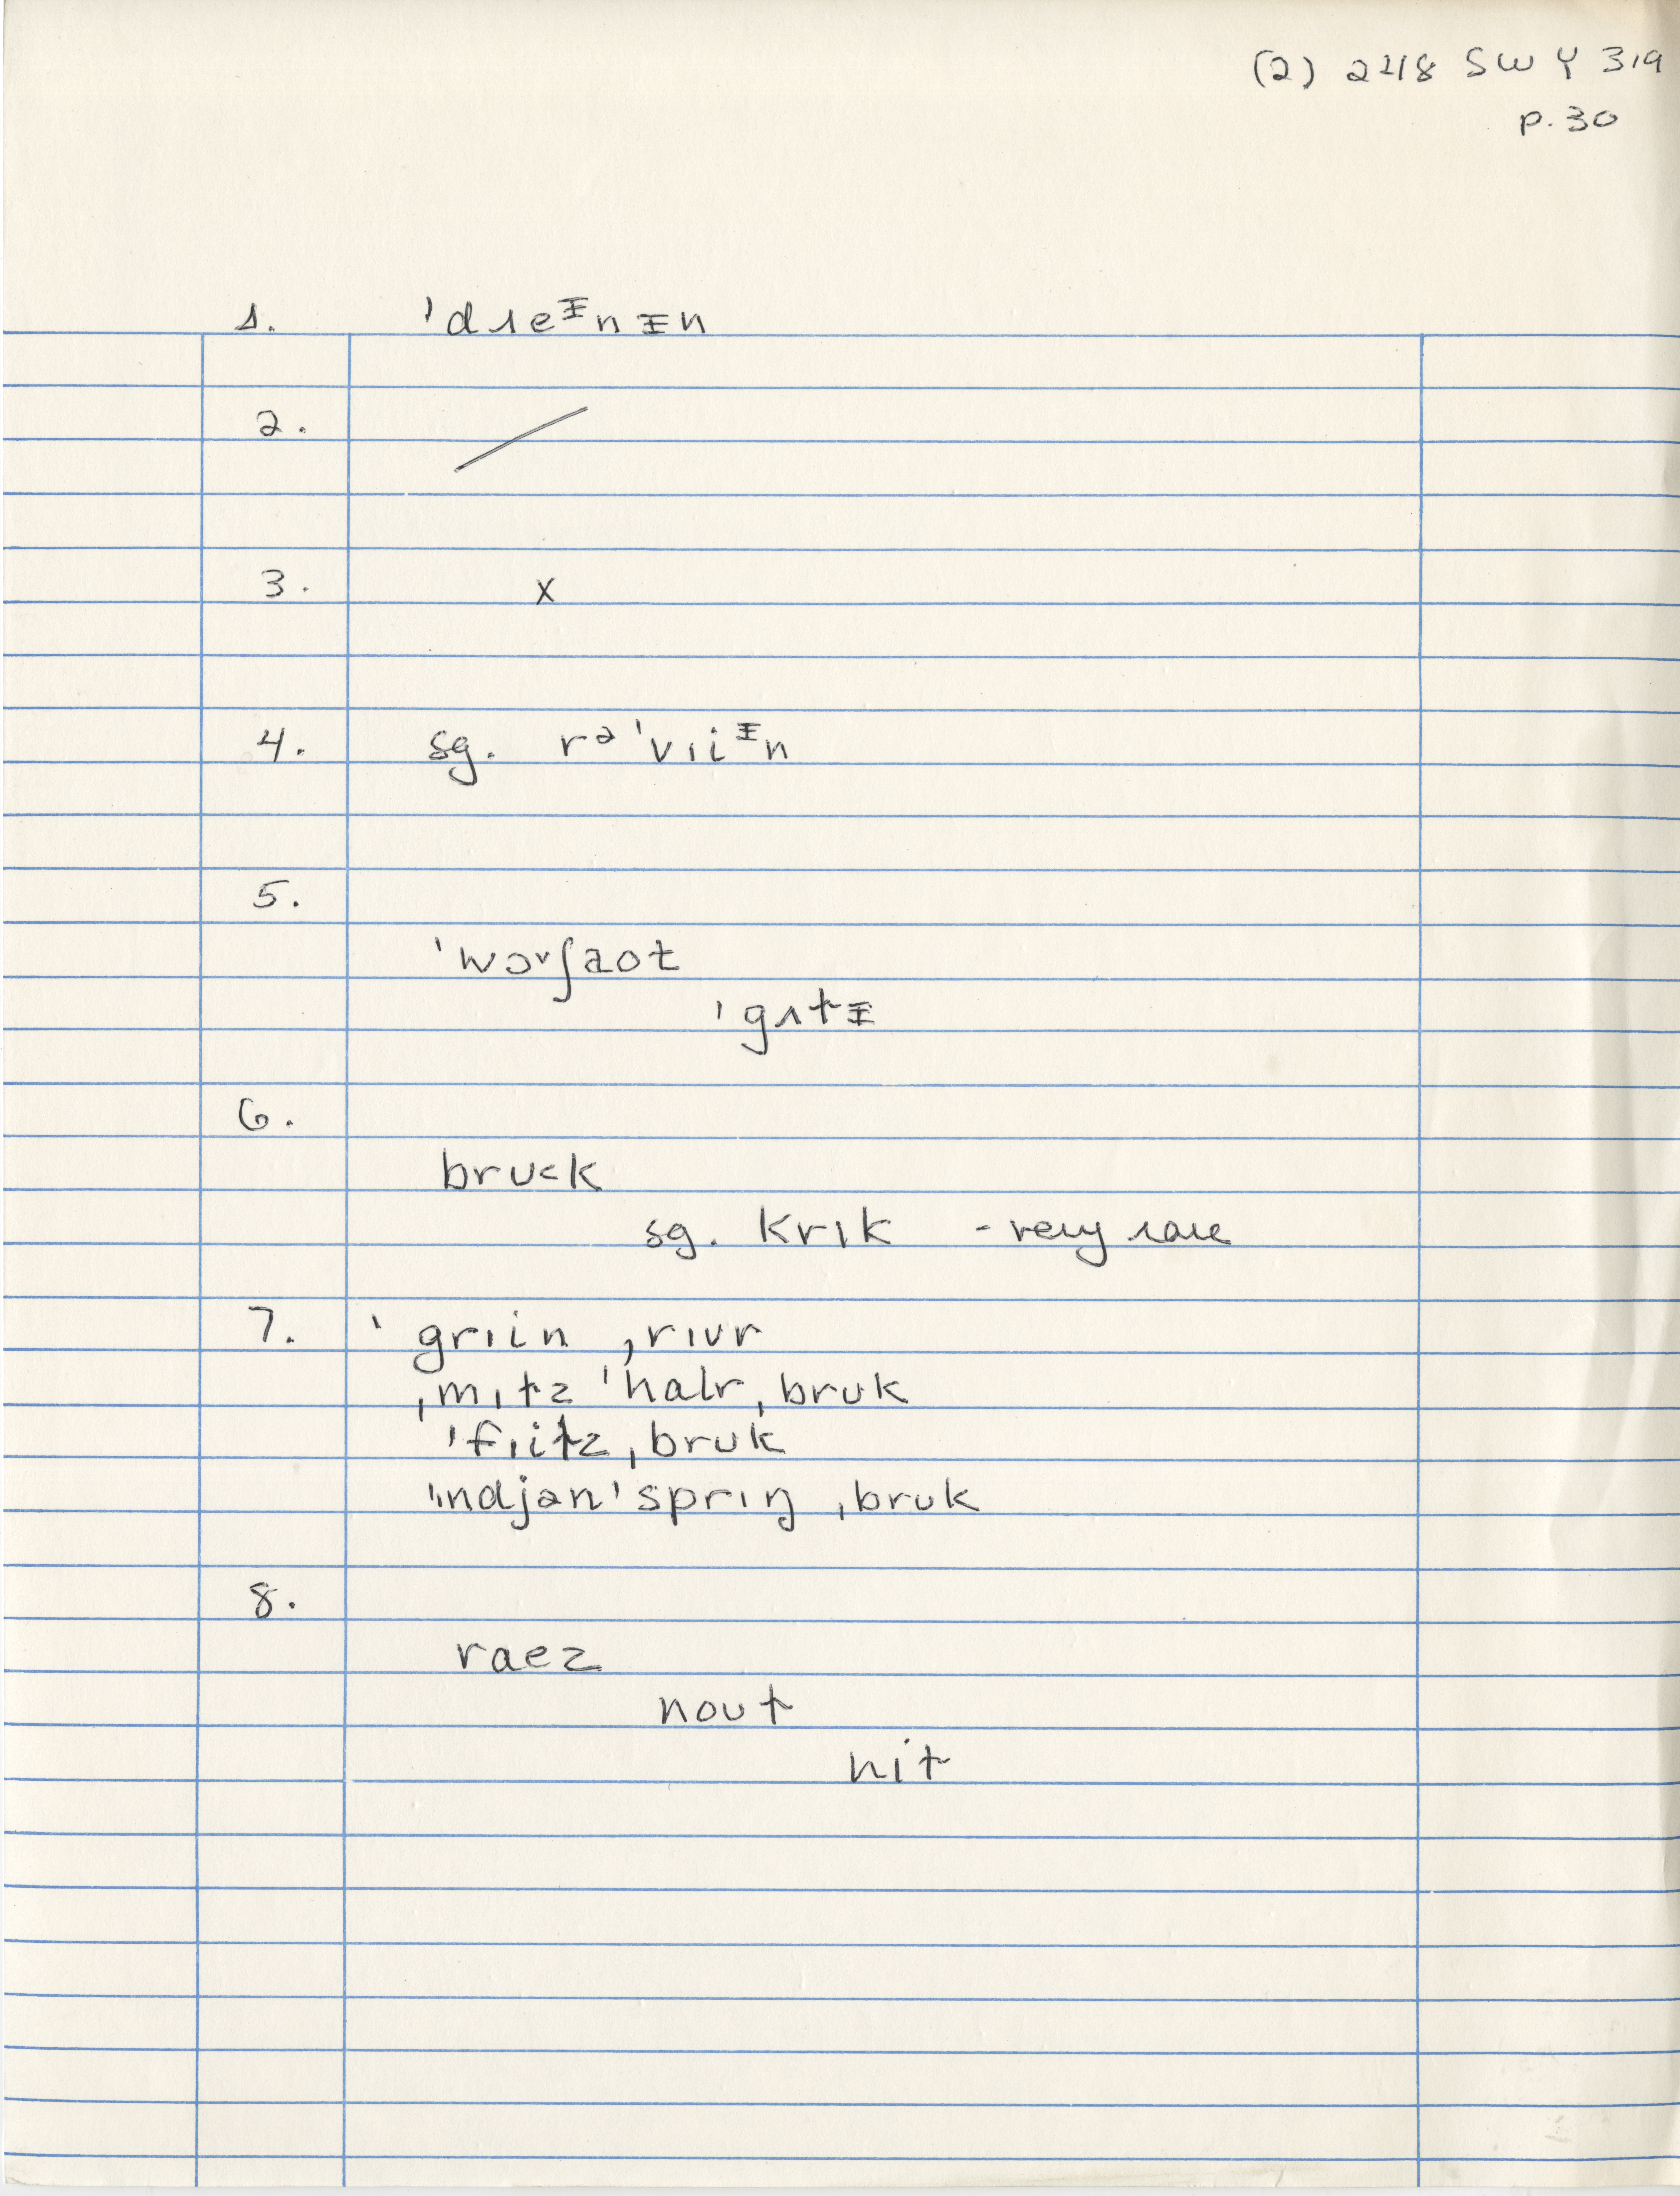 (2) 248 SW Y 319
p. 30
1. 'dɹeᵻnᵻn
2. /
3. x
4. sg. rə'vɪiᵻn
5.
'wɔvʃaot
'gʌtᵻ
6.
bruck
sg. krɪk - very rare
7. 'grɪin ˌrɪvr
ˌmɪtz 'halr ˌbruk
'flitz ˌbruk
'ɪndjən 'sprɪŋ ˌbruk
8.
raez
nout
hit